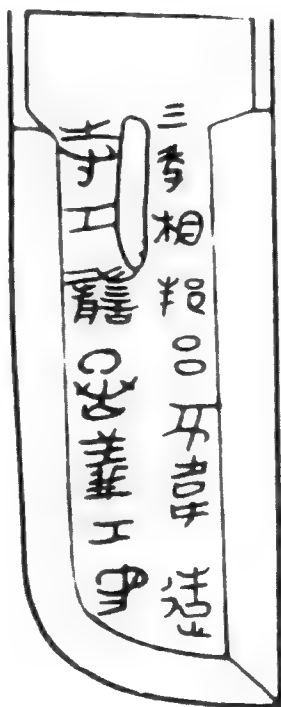 三年相邦呂不韋造
寺工讋丞義工寫